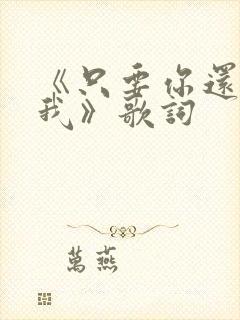 《只要你還
我》歌詞
萬燕